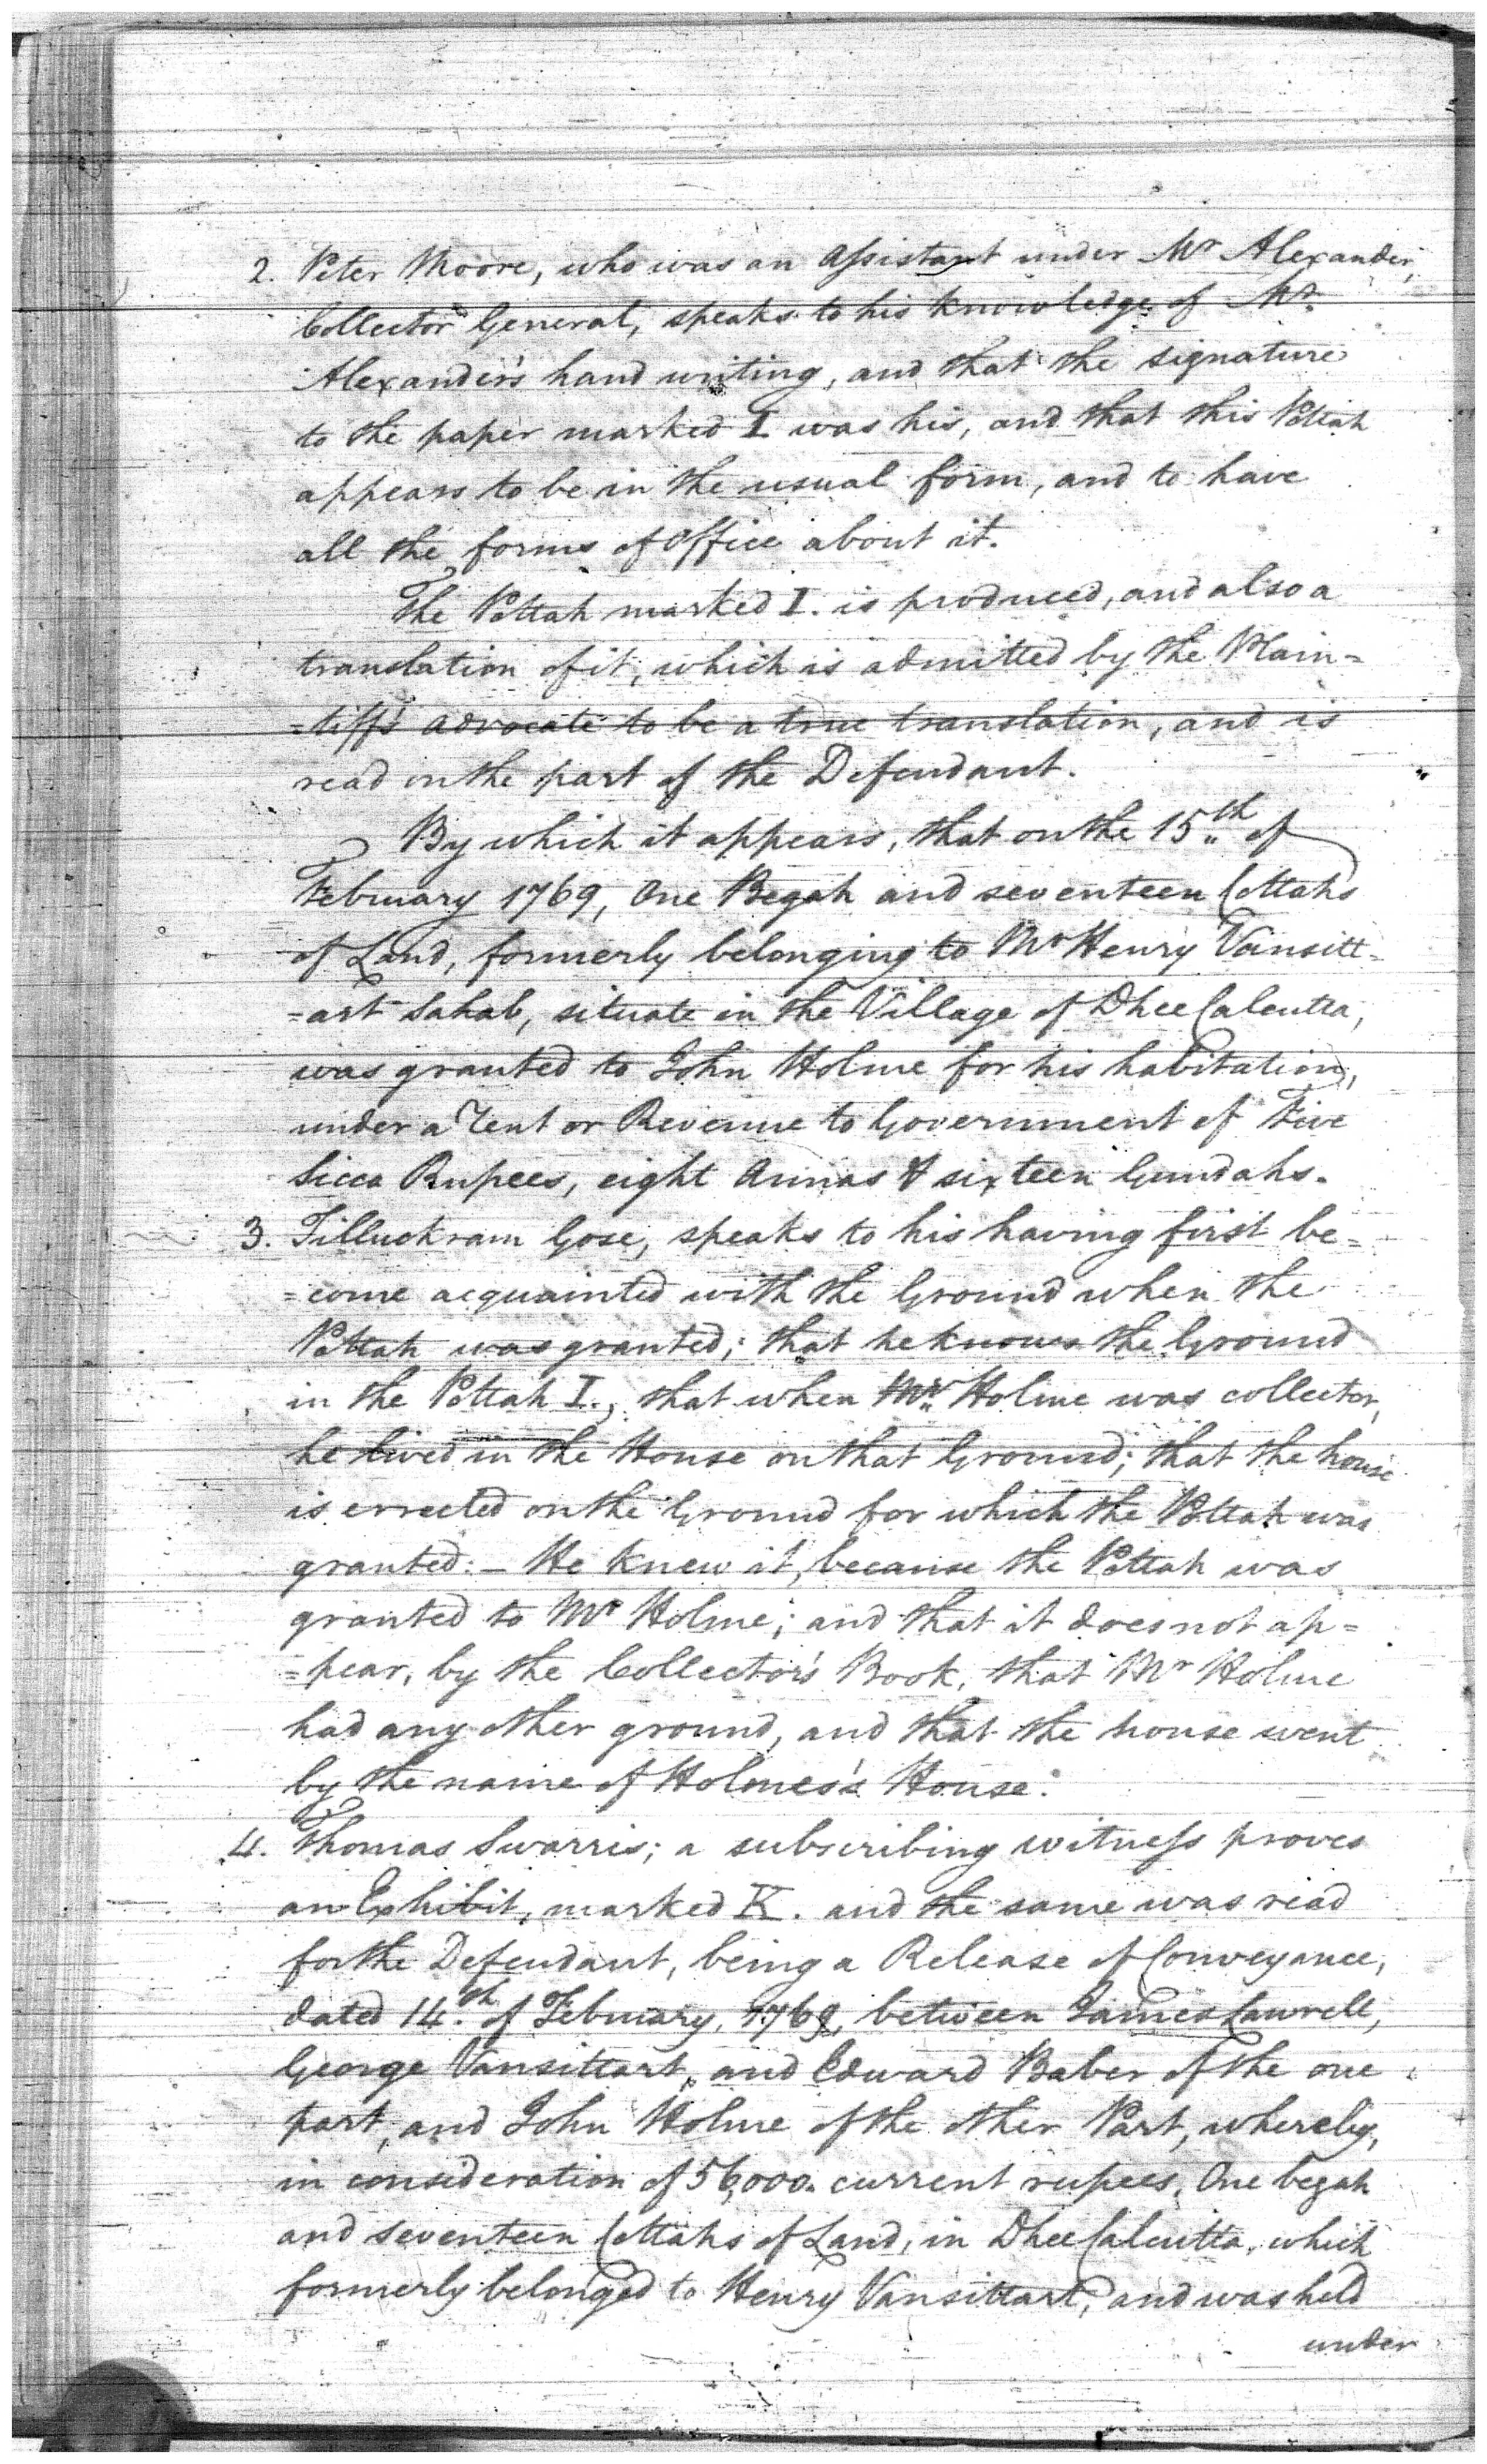 2. Peter Moore, who was an Assistant under Mr Alexander,
Collector General, speaks to his knowledge of Mr.
Alexander's hand writing, and that the signature
to the paper marked I was his, and that this Pottah
appears to be in the usual form, and to have
all the forms of Office about it.
The Pottah marked I. is produced, and also a
translation of it, which is admitted by the Plain=
=tiff's advocate to be a true translation, and is
read on the part of the Defendant.
By which it appears, that on the 15th of
February 1769, One Begah and seventeen Cottahs
of Land, formerly belonging to Mr Henry Vansitt=
=art Sahab, situate in the Village of Dhee Calcutta,
was granted to John Holme for his habitation,
under a Rent or Revenue to Government of Five
Sicca Rupees, eight Annas & sixteen Gundahs.
3. Tilluckram Gose, speaks to his having first be=
=come acquainted with the Ground when the
Pottah was granted; that he knows the Ground
in the Pottah I., that when Mr. Holme was collector,
he lived in the House on that Ground; that the house
is errected on the Ground for which the Pottah was
granted:- He knew it, because the Pottah was
granted to Mr Holme; and that it does not ap=
=pear, by the Collector's Book, that Mr Holme
had any other ground, and that the house went
by the name of Holmes's House.
4. Thomas Swarris; a subscribing witness proves
an Exhibit, marked K. and the same was read
for the Defendant, being a Release of Conveyance,
dated 14th of February, 1769, between James Lawrell,
George Vansittart, and Edward Baber of the one
part, and John Holme of the other Part, whereby,
in consideration of 56,000. current rupees, One begah
and seventeen Cottahs of Land, in Dhee Calcutta, which
formerly belonged to Henry Vansittart, and was held
under